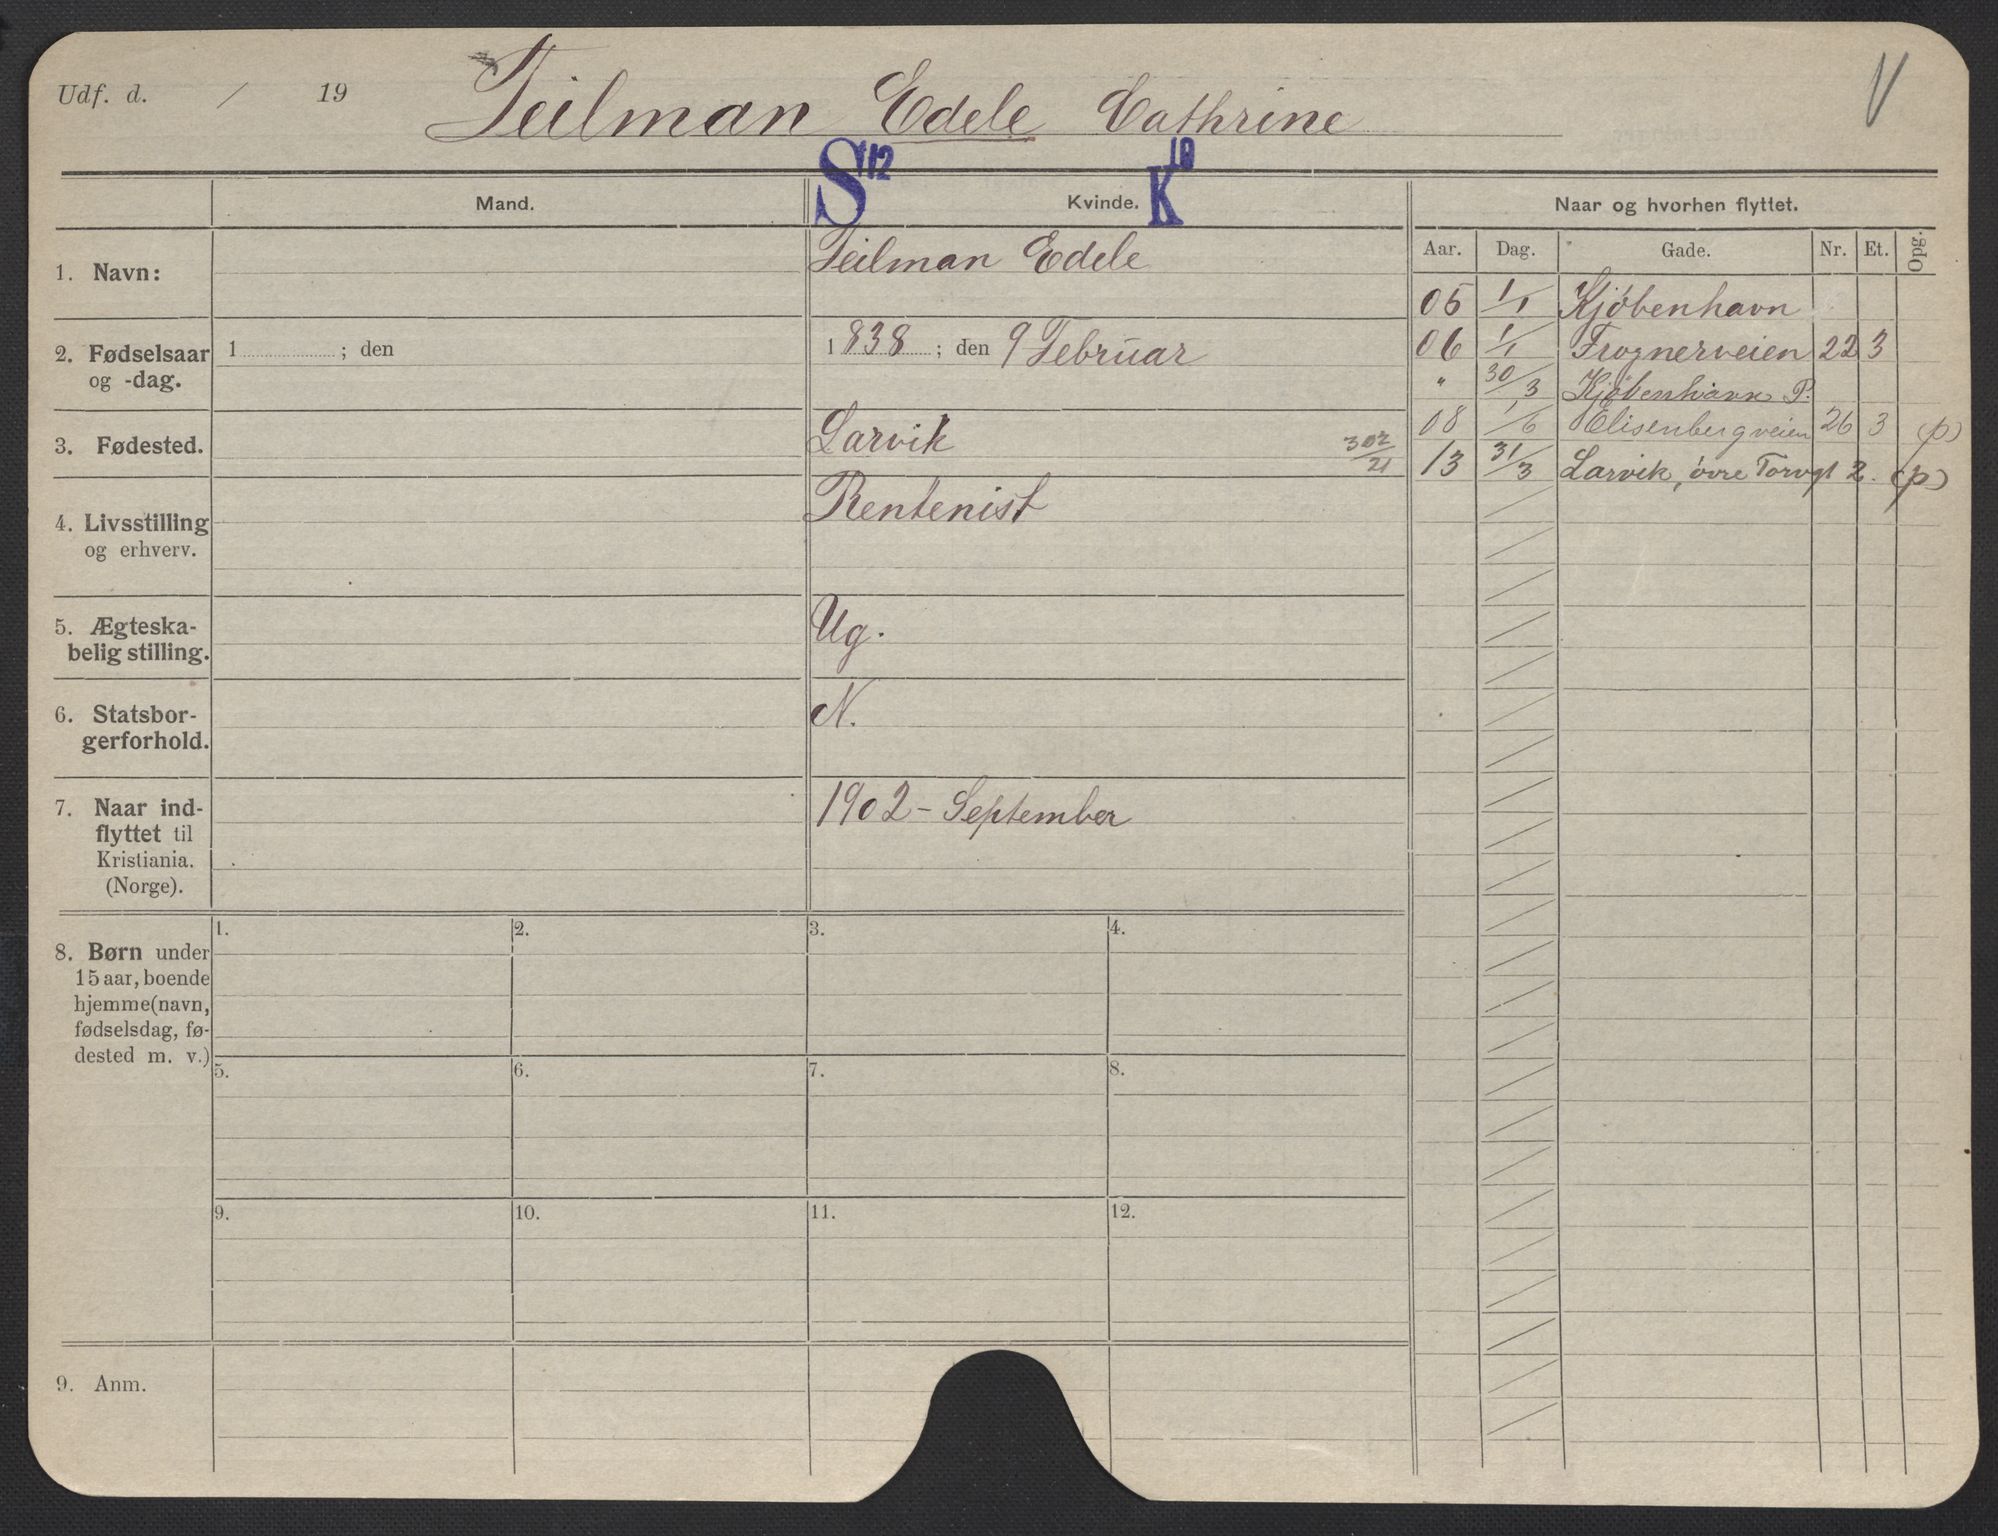 Udf. d. / 19
Teilman Edele Cathrine
V
S 12
K 10
Mand.
Kvinde.
Naar og hvorhen flyttet.
Aar. Dag. Gade. Nr. Et. Opg.
1. Navn:
Teilman Edele
2. Fødselsaar
og -dag.
1 ; den
1838 ; den 9 Februar
3. Fødested.
Larvik
302/21
4. Livsstilling
og erhverv.
Rentenist
5. Ægteska-
belig stilling.
Ug.
6. Statsbor-
gerforhold.
N.
7. Naar ind-
flyttet til
Kristiania.
(Norge).
1902 - September
05 1/1 Kjøbenhavn
06 1/1 Frognerveien 22 3
" 30/3 Kjøbenhavn P.
08 1/6 Elisenbergveien 26 3 (p)
13 31/3 Larvik, øvre Torvgt 2. (p)
8. Børn under
15 aar, boende
hjemme (navn,
fødselsdag, fø-
dested m. v.)
1. 2. 3. 4.
5. 6. 7. 8.
9. 10. 11. 12.
9. Anm.